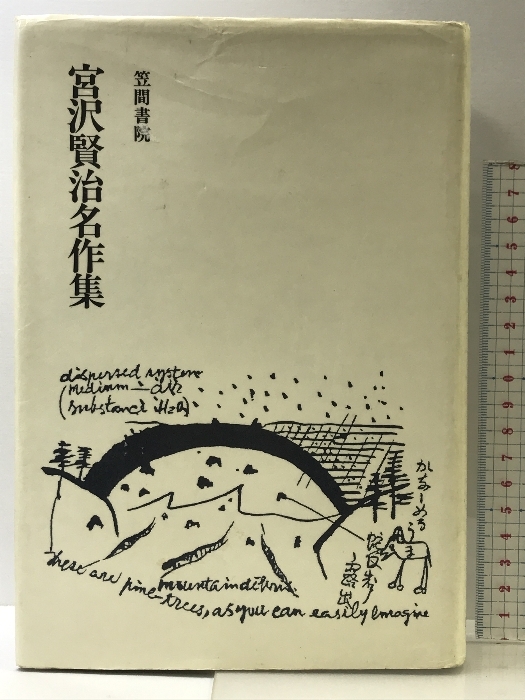 宮沢賢治名作集
笠間書院
dispersed system
(medium — air
(substance H2O)
These are pine-trees, as you can easily imagine
mountain debris
露出
8
7
6
5
4
3
2
1
9
8
7
6
5
4
3
2
1